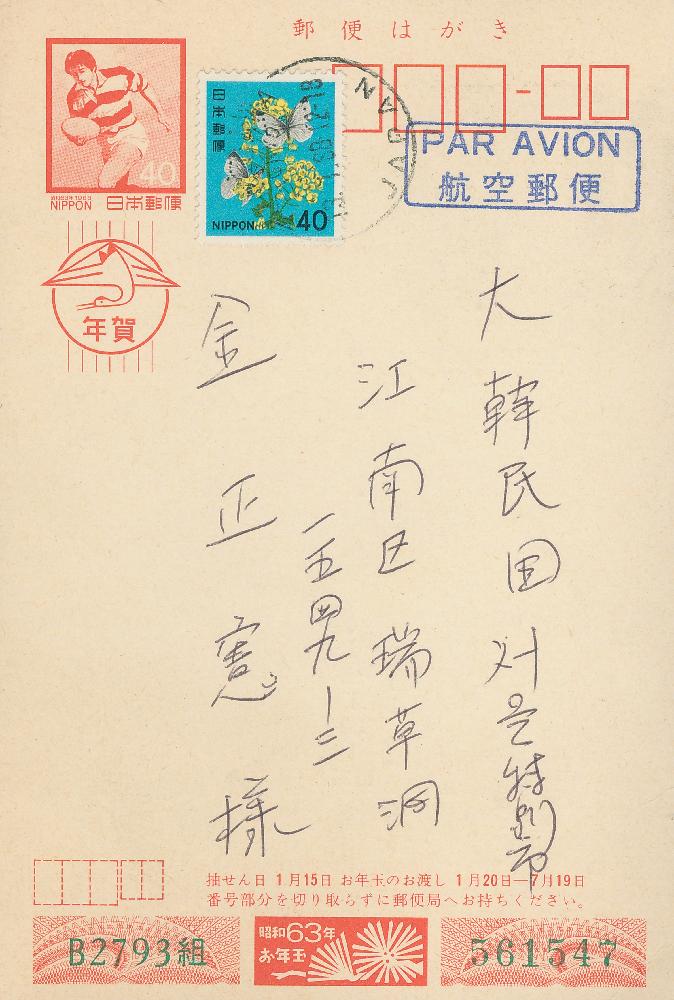 郵便はがき
40
NIPPON 日本郵便
日本郵便
NIPPON 40
JAPAN
PAR AVION
航空郵便
年賀
大韓民国서울特別市
江南区瑞草洞
一五四九-三
金正憲様
抽せん日 1月15日 お年玉のお渡し 1月20日—7月19日
番号部分を切り取らずに郵便局へお持ちください。
B2793組
昭和63年
お年玉
561547